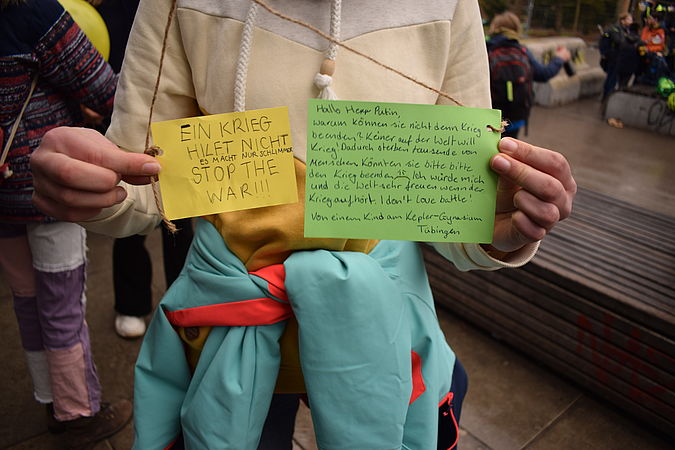 EIN KRIEG
HILFT NICHT
ES MACHT NUR SCHLIMMER
STOP THE
WAR!!!
Hallo Herr Putin,
warum können sie nicht denn Krieg
beenden? Keiner auf der Welt will
Krieg! Dadurch sterben tausende von
Menschen. Könnten sie bitte bitte
den Krieg beenden. Ich würde mich
und die Welt sehr freuen wenn der
Krieg aufhört. I don't Love battle!
Von einem Kind am Kepler-Gymnasium
Tübingen